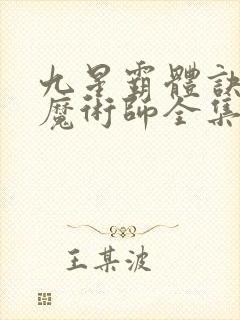 九星霸體訣
魔術師全集
王某波